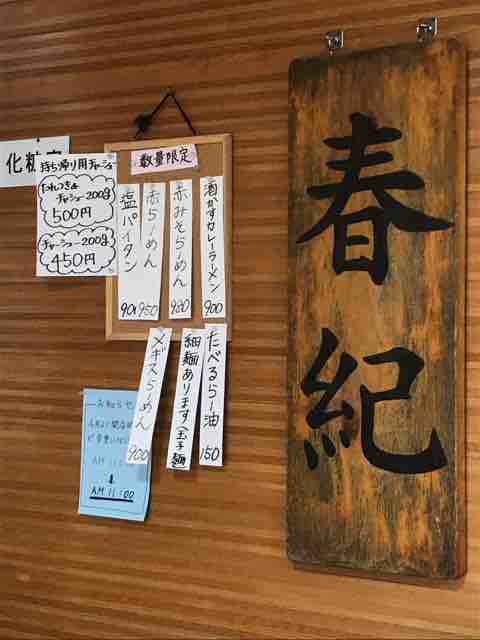 春紀
数量限定
酒かすカレーラーメン
900
赤みそらーめん
980
赤らーめん
950
塩パイタン
たべるらー油
150
細麺あります(玉子麺
メギスらーめん
900
化粧
持ち帰り用チャーシュー
チャーシュー200g
500円
チャーシュー200g
450円
お知らせ
AM 11:00